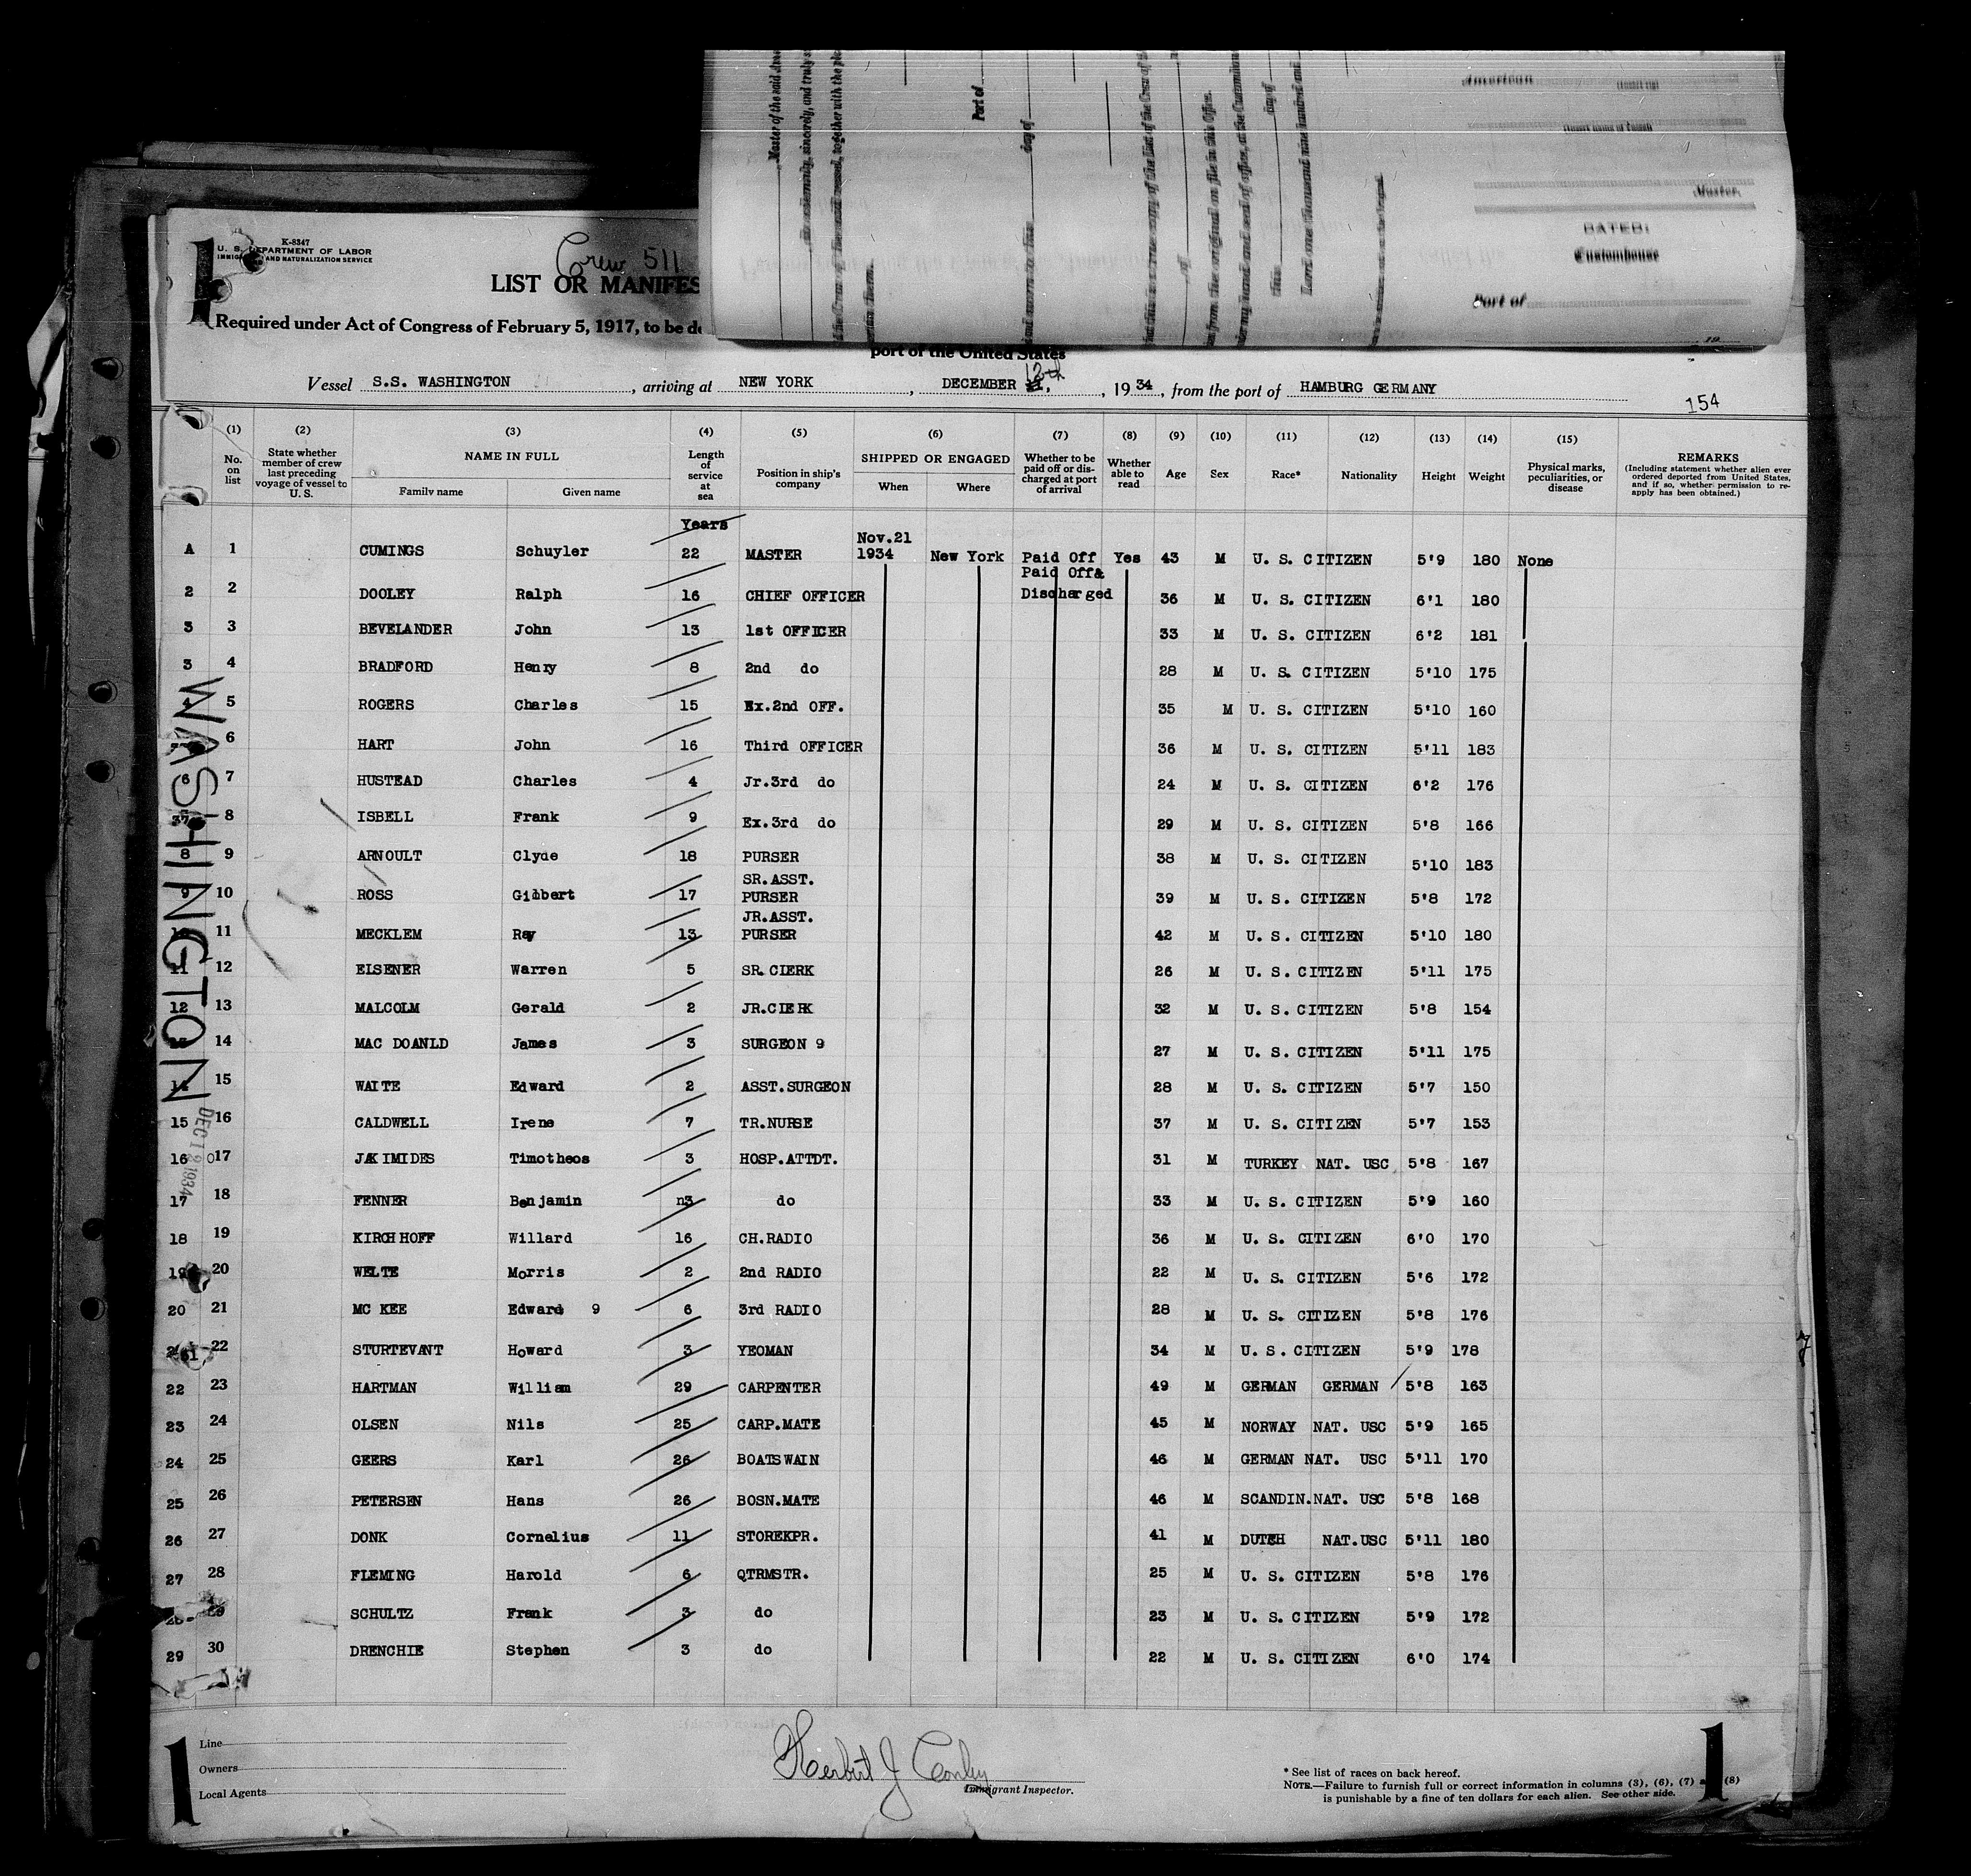 K-8347
U. S. DEPARTMENT OF LABOR
IMMIGRATION AND NATURALIZATION SERVICE
Crew 511
LIST OR MANIFES
Required under Act of Congress of February 5, 1917, to be de
port of the United States
Master of the said
sincerely, and truly
together with the
Port of
day of
American
Master.
DATED:
Customhouse
Port of
19
Vessel S.S. WASHINGTON, arriving at NEW YORK, DECEMBER 12th, 1934, from the port of HAMBURG GERMANY
154
(1) (2) (3) (4) (5) (6) (7) (8) (9) (10) (11) (12) (13) (14) (15)
No. on list
State whether member of crew last preceding voyage of vessel to U. S.
NAME IN FULL
Family name Given name
Length of service at sea
Position in ship's company
SHIPPED OR ENGAGED
When Where
Whether to be paid off or discharged at port of arrival
Whether able to read
Age Sex Race* Nationality Height Weight
Physical marks, peculiarities, or disease
REMARKS
(Including statement whether alien ever ordered deported from United States, and if so, whether permission to re-apply has been obtained.)
Years
A 1 CUMINGS Schuyler 22 MASTER Nov.21 1934 New York Paid Off Yes 43 M U. S. CITIZEN 5'9 180 None
2 2 DOOLEY Ralph 16 CHIEF OFFICER Paid Off& Discharged 36 M U. S. CITIZEN 6'1 180
3 3 BEVELANDER John 13 1st OFFICER 33 M U. S. CITIZEN 6'2 181
3 4 BRADFORD Henry 8 2nd do 28 M U. S. CITIZEN 5'10 175
4 5 ROGERS Charles 15 Ex.2nd OFF. 35 M U. S. CITIZEN 5'10 160
6 HART John 16 Third OFFICER 36 M U. S. CITIZEN 5'11 183
6 7 HUSTEAD Charles 4 Jr.3rd do 24 M U. S. CITIZEN 6'2 176
37 8 ISBELL Frank 9 Ex.3rd do 29 M U. S. CITIZEN 5'8 166
8 9 ARNOULT Clyde 18 PURSER 38 M U. S. CITIZEN 5'10 183
9 10 ROSS Gilbert 17 SR.ASST. PURSER 39 M U. S. CITIZEN 5'8 172
10 11 MECKLEM Ray 13 JR.ASST. PURSER 42 M U. S. CITIZEN 5'10 180
11 12 ELSENER Warren 5 SR.CLERK 26 M U. S. CITIZEN 5'11 175
12 13 MALCOLM Gerald 2 JR.CLERK 32 M U. S. CITIZEN 5'8 154
13 14 MAC DOANLD James 3 SURGEON 9 27 M U. S. CITIZEN 5'11 175
14 15 WAITE Edward 2 ASST.SURGEON 28 M U. S. CITIZEN 5'7 150
15 16 CALDWELL Irene 7 TR.NURSE 37 M U. S. CITIZEN 5'7 153
16 017 JAKIMIDES Timotheos 3 HOSP.ATTDT. 31 M TURKEY NAT. USC 5'8 167
17 18 FENNER Benjamin n3 do 33 M U. S. CITIZEN 5'9 160
18 19 KIRCHHOFF Willard 16 CH.RADIO 36 M U. S. CITIZEN 6'0 170
19 20 WELTE Morris 2 2nd RADIO 22 M U. S. CITIZEN 5'6 172
20 21 MC KEE Edward 9 6 3rd RADIO 28 M U. S. CITIZEN 5'8 176
22 STURTEVANT Howard 3 YEOMAN 34 M U. S. CITIZEN 5'9 178
22 23 HARTMAN William 29 CARPENTER 49 M GERMAN GERMAN 5'8 163
23 24 OLSEN Nils 25 CARP.MATE 45 M NORWAY NAT. USC 5'9 165
24 25 GEERS Karl 26 BOATSWAIN 46 M GERMAN NAT. USC 5'11 170
25 26 PETERSEN Hans 26 BOSN.MATE 46 M SCANDIN.NAT. USC 5'8 168
26 27 DONK Cornelius 11 STOREKPR. 41 M DUTCH NAT.USC 5'11 180
27 28 FLEMING Harold 6 QTRMSTR. 25 M U. S. CITIZEN 5'8 176
28 29 SCHULTZ Frank 3 do 23 M U. S. CITIZEN 5'9 172
29 30 DRENCHIE Stephen 3 do 22 M U. S. CITIZEN 6'0 174
WASHINGTON
DEC 12 1934
Line
Owners
Local Agents
Herbert J Conley
Immigrant Inspector.
* See list of races on back hereof.
NOTE.—Failure to furnish full or correct information in columns (3), (6), (7) a (8)
is punishable by a fine of ten dollars for each alien. See other side.
1
1